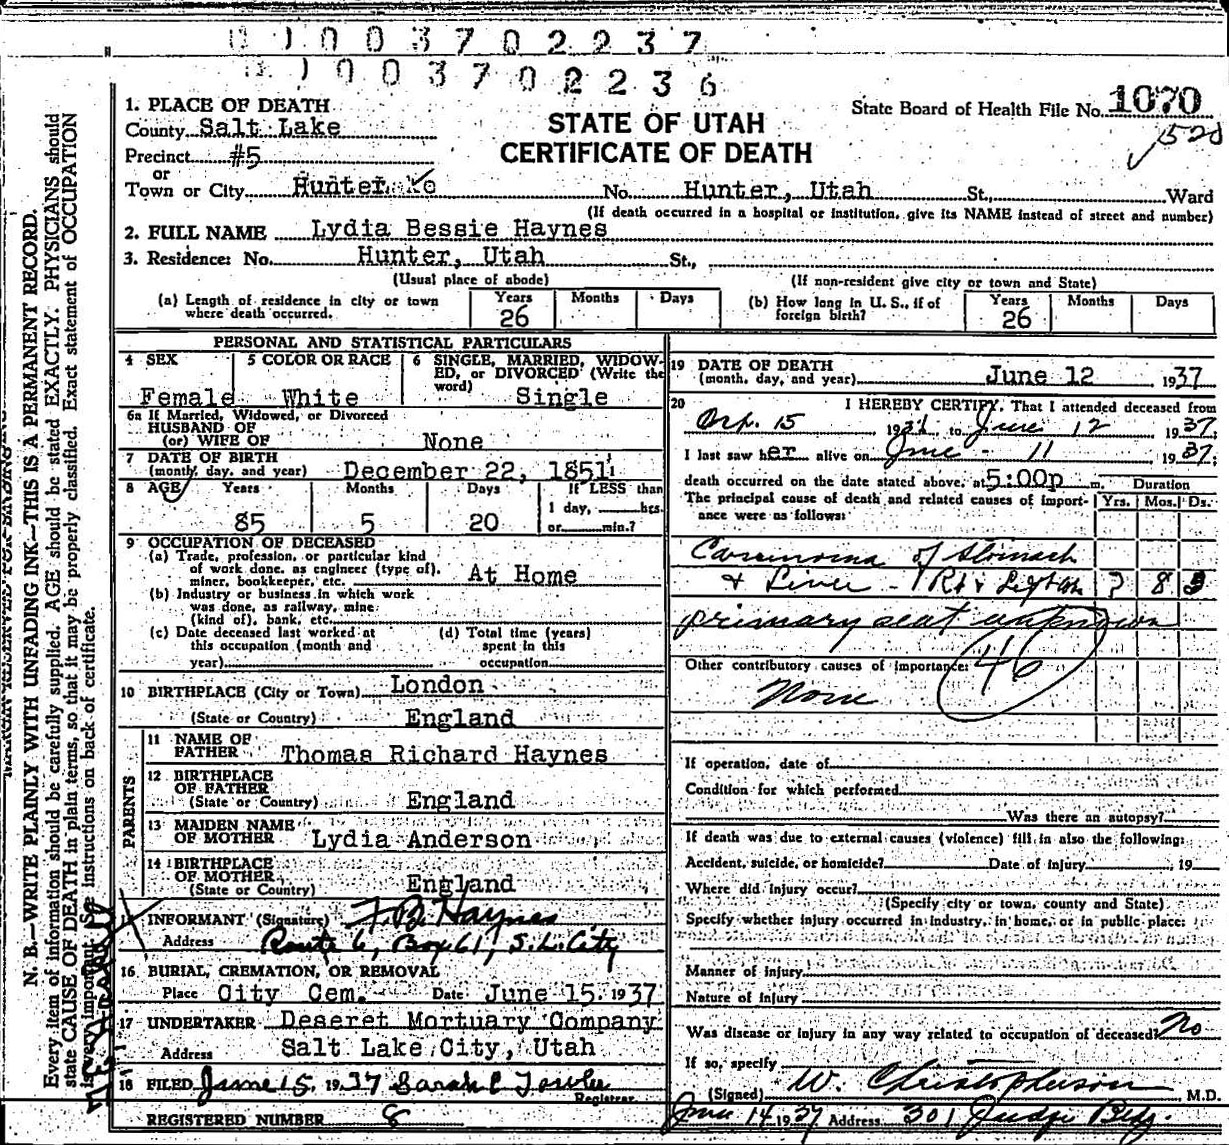 1003702237
1003702236
1. PLACE OF DEATH
County Salt Lake
Precinct #5
or
Town or City Hunter No. Hunter, Utah St, Ward
STATE OF UTAH
CERTIFICATE OF DEATH
State Board of Health File No. 1070
(If death occurred in a hospital or institution, give its NAME instead of street and number)
2. FULL NAME Lydia Bessie Haynes
3. Residence: No. Hunter, Utah St.,
(Usual place of abode) (If non-resident give city or town and State)
(a) Length of residence in city or town where death occurred. Years 26 Months Days
(b) How long in U. S., if of foreign birth? Years 26 Months Days
PERSONAL AND STATISTICAL PARTICULARS
4 SEX Female
5 COLOR OR RACE White
6 SINGLE, MARRIED, WIDOWED, or DIVORCED (Write the word) Single
6a If Married, Widowed, or Divorced
HUSBAND OF
(or) WIFE OF None
7 DATE OF BIRTH
(month, day, and year) December 22, 1851
8 AGE Years 85 Months 5 Days 20 If LESS than
1 day, hrs.
or min.?
9 OCCUPATION OF DECEASED
(a) Trade, profession, or particular kind
of work done, as engineer (type of),
miner, bookkeeper, etc. At Home
(b) Industry or business in which work
was done, as railway, mine
(kind of), bank, etc.
(c) Date deceased last worked at
this occupation (month and
year)
(d) Total time (years)
spent in this
occupation
10 BIRTHPLACE (City or Town) London
(State or Country) England
PARENTS
11 NAME OF
FATHER Thomas Richard Haynes
12 BIRTHPLACE
OF FATHER
(State or Country) England
13 MAIDEN NAME
OF MOTHER Lydia Anderson
14 BIRTHPLACE
OF MOTHER
(State or Country) England
INFORMANT (Signature) F. B. Haynes
Address Route 6, Box 61, S. L. City
16 BURIAL, CREMATION, OR REMOVAL
Place City Cem. Date June 15 1937
17 UNDERTAKER Deseret Mortuary Company
Address Salt Lake City, Utah
18 FILED June 15, 1937 Sarah E Towler
Registrar
REGISTERED NUMBER 8
19 DATE OF DEATH
(month, day, and year) June 12 1937
20 I HEREBY CERTIFY, That I attended deceased from
15 19 to June 12 1937;
I last saw her alive on June 11 1937;
death occurred on the date stated above, at 5:00p m. Duration
The principal cause of death and related causes of importance were as follows: Yrs. Mos. Ds.
Carcinoma of Stomach
& Liver - ? 8
primary seat unknown
46
Other contributory causes of importance:
None
If operation, date of
Condition for which performed
Was there an autopsy?
If death was due to external causes (violence) fill in also the following:
Accident, suicide, or homicide? Date of injury , 19
Where did injury occur?
(Specify city or town, county and State)
Specify whether injury occurred in industry, in home, or in public place:
Manner of injury
Nature of injury
Was disease or injury in any way related to occupation of deceased? No
If so, specify
(Signed) W. Christopherson, M.D.
June 14 1937 Address 301 Judge Bldg.
N. B.—WRITE PLAINLY WITH UNFADING INK—THIS IS A PERMANENT RECORD.
Every item of information should be carefully supplied. AGE should be stated EXACTLY. PHYSICIANS should
state CAUSE OF DEATH in plain terms, so that it may be properly classified. Exact statement of OCCUPATION
is very important. See instructions on back of certificate.